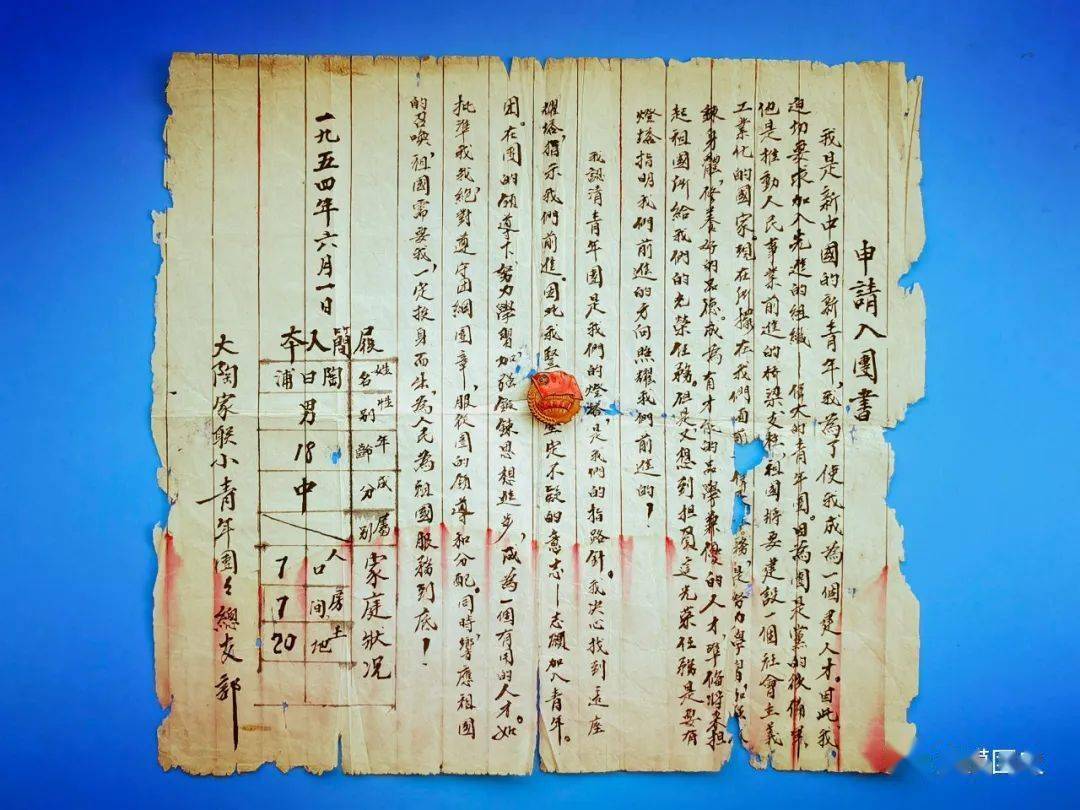 申請入團書
我是新中國的新青年，我為了使我成為一個建人才。因此，我
迫切要求加入先進的組織——偉大的青年團。因為團是黨的後備軍，
他是推動人民事業前進的桥梁支柱，祖國將要建設一個社會主義
工業化的國家。現在所擺在我們面前 務，是努力學習，
鍊身體，修養好的品德。成為有才 的品學兼優的人才，準俻將來担
起祖國所給我們的光榮任務。但是又想到担員這光荣任務是要有
燈塔指明我們前進的方向照耀我們前進的！
我認清青年團是我們的燈塔，是我們的指路針。我决心找到這座
耀塔，指示我們前進。因此我堅 坚定不 的意志——志願加入青年。
团。在團的領導下努力學習加強鍛鍊思想進步，成為一個有用的人才。如
批準我我絕對遵守团綱團章，服從團的領導和分配。同時，響應祖國
的召喚，祖國需要我，一定投身而出，為人民為祖國服務到底！
履簡人本
姓名 陶日浦
性别 男
年齡 18
成分 中
屬别
家庭狀况
人口 7
房間 7
土地 20
一九五四年六月一日
大陶家联小青年團々總支部